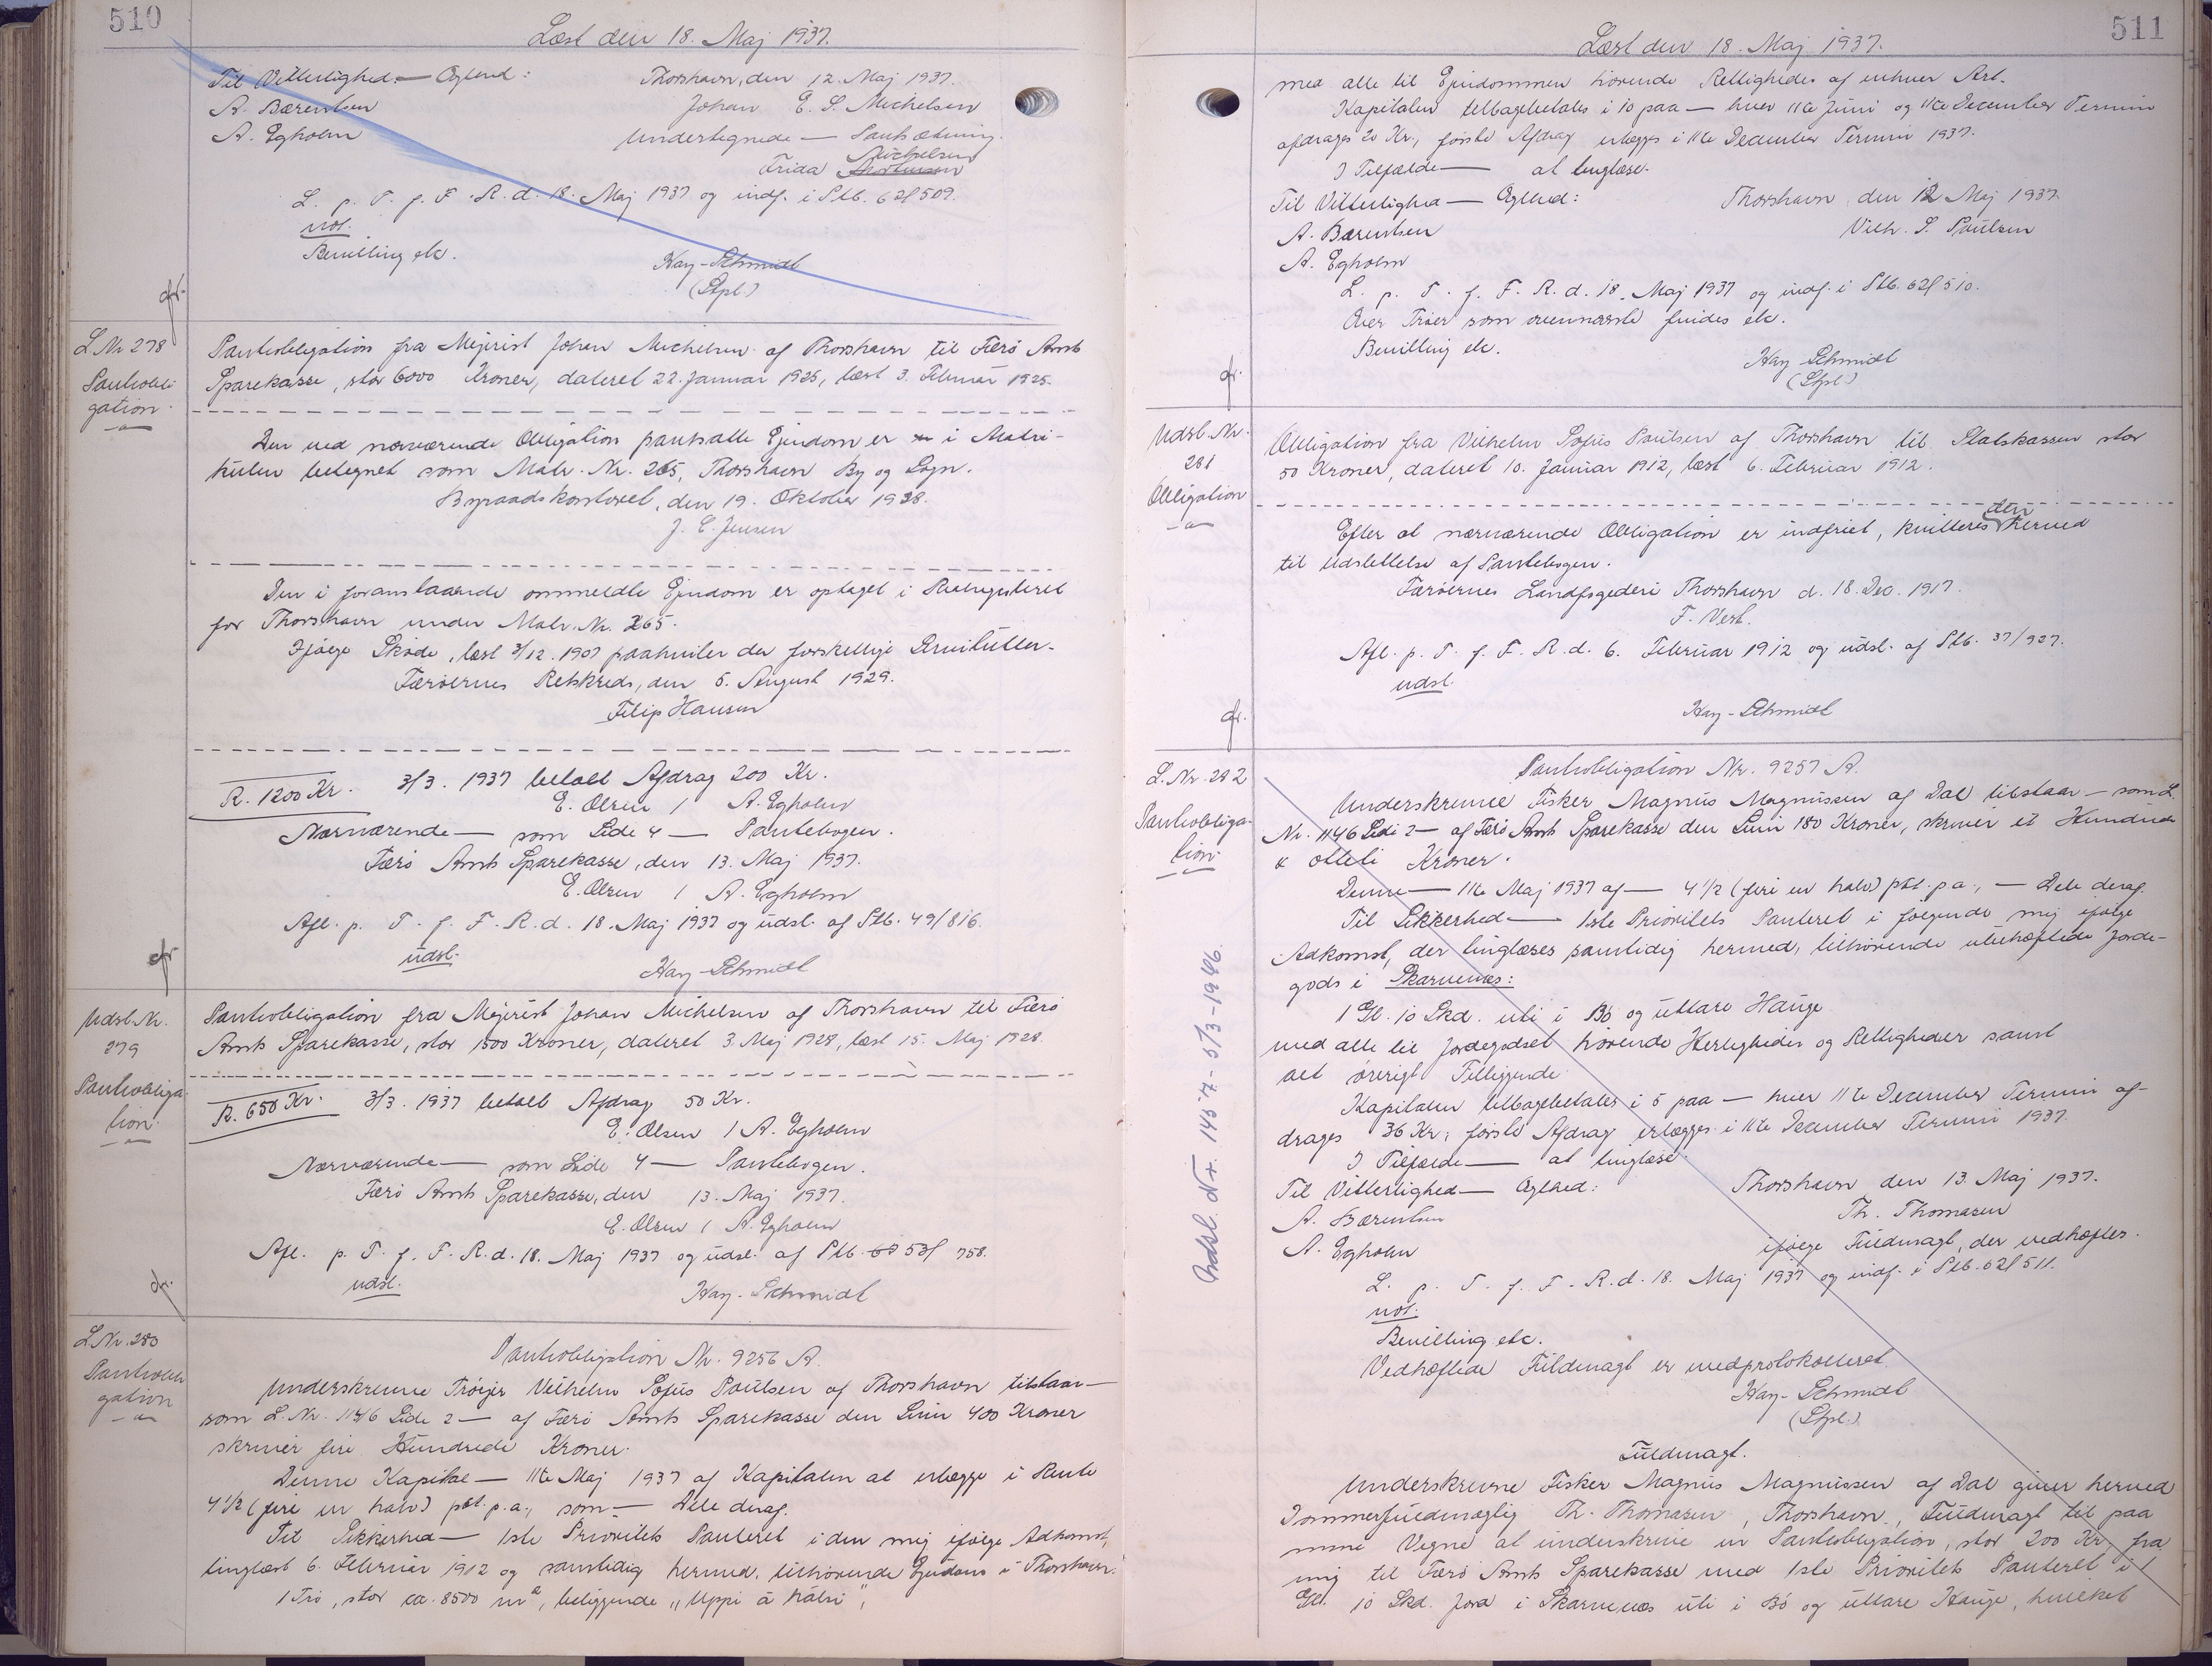 510
Læst den 18. Maj 1937.
Til Vitterlighed: — Ægthed:
Thorshavn, den 12. Maj 1937.
A. Bærentsen
Johan E. S. Michelsen
A. Egholm
Undertegnede — Pantsætning.
Michelsen
Frida Mortensen
L. p. T. f. F. R. d. 18. Maj 1937 og indf. i Ptb. 62/509.
not.
Bevilling etc.
Kay-Schmidt
(Stpl.)
L Nr 278
Pantobli-
gation.
Pantobligation fra Mejerist Johan Michelsen af Thorshavn til Færø Amts
Sparekasse, stor 6000 Kroner, dateret 22. Januar 1925, læst 3. Februar 1925.
Den ved nærværende Obligation pantsatte Ejendom er i Matri-
kulen betegnet som Matr. Nr. 265, Thorshavn By og Sogn.
Byraadskontoret, den 19. Oktober 1928.
J. C. Jensen
Den i foranstaaende ommeldte Ejendom er optaget i Realregisteret
for Thorshavn under Matr. Nr. 265.
Ifølge Skøde, læst 3/12. 1907 paahviler der forskellige Servitutter.
Færøernes Retskreds, den 5. August 1929.
Filip Hansen
R. 1200 Kr. 3/3. 1937 betalt Afdrag 200 Kr.
E. Olsen / A. Egholm
Nærværende — som Side 4 — Pantebogen.
Færø Amts Sparekasse, den 13. Maj 1937.
E. Olsen / A. Egholm
Afl. p. T. f. F. R. d. 18. Maj 1937 og udsl. af Ptb. 49/816.
udsl.
Kay-Schmidt
Udsl. Nr.
279
Pantobliga-
tion.
Pantobligation fra Mejerist Johan Michelsen af Thorshavn til Færø
Amts Sparekasse, stor 1500 Kroner, dateret 3. Maj 1928, læst 15. Maj 1928.
R. 650 Kr. 3/3. 1937 betalt Afdrag 50 Kr.
E. Olsen / A. Egholm
Nærværende — som Side 4 — Pantebogen.
Færø Amts Sparekasse, den 13. Maj 1937.
E. Olsen / A. Egholm
Afl. p. T. f. F. R. d. 18. Maj 1937 og udsl. af Ptb. 53/758.
udsl.
Kay-Schmidt
L Nr. 280
Pantobli-
gation
Pantobligation Nr. 9256 A.
Underskrevne Trøjer Vilhelm Sofus Poulsen af Thorshavn tilstaar —
som L. Nr. 1146 Side 2 — af Færø Amts Sparekasse den Sum 400 Kroner
skriver fire Hundrede Kroner.
Denne Kapital — 11te Maj 1937 af Kapitalen at erlægge i Rente
4 1/2 (fire en halv) pct. p.a., som — Dele deraf.
Til Sikkerhed — 1ste Prioritets Panteret i den mig ifølge Adkomst,
tinglæst 6. Februar 1912 og samtidig hermed, tilhørende Ejendom i Thorshavn:
1 Trø, stor ca. 8500 m², beliggende "Uppi á hálsi",
511
Læst den 18. Maj 1937.
med alle til Ejendommen hørende Rettigheder af enhver Art.
Kapitalen tilbagebetales i 10 paa — hver 11te Juni og 11te December Termin
afdrages 20 Kr., første Afdrag erlægges i 11te December Termin 1937.
I Tilfælde — at tinglæse.
Til Vitterlighed — Ægthed:
Thorshavn, den 12 Maj 1937.
A. Bærentsen
Vilh. S. Poulsen
A. Egholm
L. p. T. f. F. R. d. 18. Maj 1937 og indf. i Ptb. 62/510.
Over Trøer som ovennævnte findes etc.
Bevilling etc.
Kay-Schmidt
(Stpl.)
Udsl. Nr.
281
Obligation
Obligation fra Vilhelm Sofus Poulsen af Thorshavn til Statskassen stor
50 Kroner, dateret 10. Januar 1912, læst 6. Februar 1912.
Efter at nærværende Obligation er indfriet, kvitteres den herved
til Udslettelse af Pantebogen.
Færøernes Landfogederi Thorshavn d. 18. Dec. 1917.
F. Vest.
Afl. p. T. f. F. R. d. 6. Februar 1912 og udsl. af Ptb. 37/927.
udsl.
Kay-Schmidt
L. Nr. 282
Pantobliga-
tion
Udsl. Nr. 1457 - 5/3-1946.
Pantobligation Nr. 9257 A.
Underskrevne Fisker Magnus Magnussen af Dal tilstaar — som L.
Nr. 1146 Side 2 — af Færø Amts Sparekasse den Sum 180 Kroner, skriver et Hundrede
& otteti Kroner.
Denne — 11te Maj 1937 af — 4 1/2 (fire en halv) pct. p.a., — Dele deraf.
Til Sikkerhed — 1ste Prioritets Panteret i følgende mig ifølge
Adkomst, der tinglæses samtidig hermed, tilhørende ubehæftede Jorde-
gods i Skarvenæs:
1 Gl. 10 Skd. uti i Bø og uttare Hauge
med alle til Jordegodset hørende Herligheder og Rettigheder samt
alt øvrigt Tilliggende.
Kapitalen tilbagebetales i 5 paa — hver 11te December Termin af-
drages 36 Kr., første Afdrag erlægges i 11te December Termin 1937.
I Tilfælde — at tinglæse.
Til Vitterlighed — Ægthed:
Thorshavn den 13. Maj 1937.
A. Bærentsen
Th. Thomasen
A. Egholm
ifølge Fuldmagt, der vedhæftes.
L. p. T. f. F. R. d. 18. Maj 1937 og indf. i Ptb. 62/511.
not.
Bevilling etc.
Vedhæftede Fuldmagt er medprotokolleret.
Kay-Schmidt
(Stpl.)
Fuldmagt.
Underskrevne Fisker Magnus Magnussen af Dal giver herved
Dommerfuldmægtig Th. Thomasen, Thorshavn, Fuldmagt til paa
mine Vegne at underskrive en Pantobligation, stor 200 Kr. fra
mig til Færø Amts Sparekasse med 1ste Prioritets Panteret i 1
Gl. 10 Skd. Jord i Skarvenæs uti i Bø og uttare Hauge, hvilket